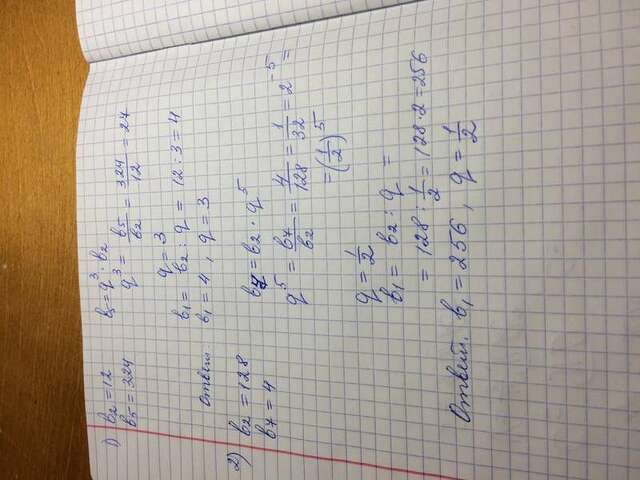 1) b₂ = 12 b₅ = q³ · b₂
b₅ = 324 q³ = b₅/b₂ = 324/12 = 27
q = 3
b₁ = b₂ : q = 12 : 3 = 4
Ответ. b₁ = 4 , q = 3
2) b₂ = 128 b₇ = b₂ · q⁵
b₇ = 4
q⁵ = b₇/b₂ = 4/128 = 1/32 = 2⁻⁵ =
= (1/2)⁵
q = 1/2
b₁ = b₂ : q =
= 128 : 1/2 = 128 · 2 = 256
Ответ. b₁ = 256 , q = 1/2